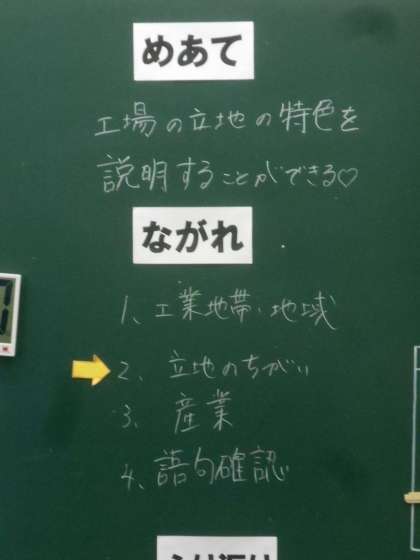 めあて
工場の立地の特色を
説明することができる♡
ながれ
1、工業地帯・地域
2、立地のちがい
3、産業
4、語句確認